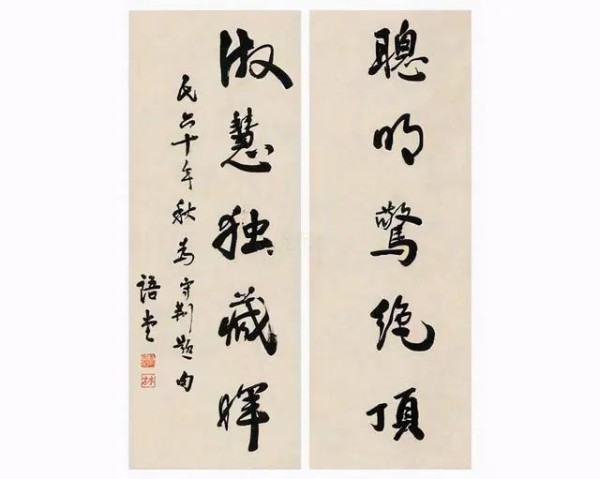 聰明驚絕頂
淑慧独藏暉
民六十年秋为守荆題句
語堂